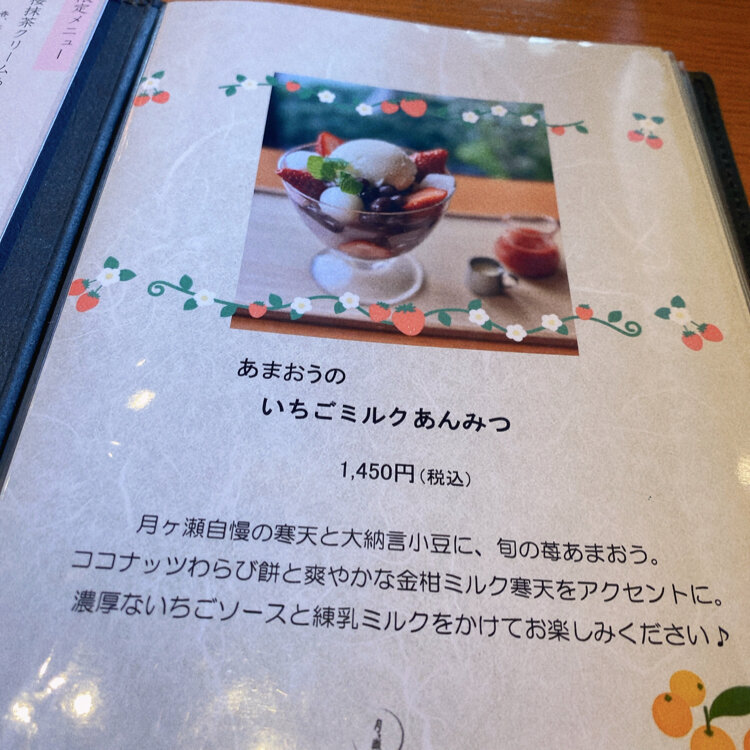 限定メニュー
桜抹茶クリーム
あまおうの
いちごミルクあんみつ
1,450円(税込)
月ヶ瀬自慢の寒天と大納言小豆に、旬の苺あまおう。
ココナッツわらび餅と爽やかな金柑ミルク寒天をアクセントに。
濃厚ないちごソースと練乳ミルクをかけてお楽しみください♪